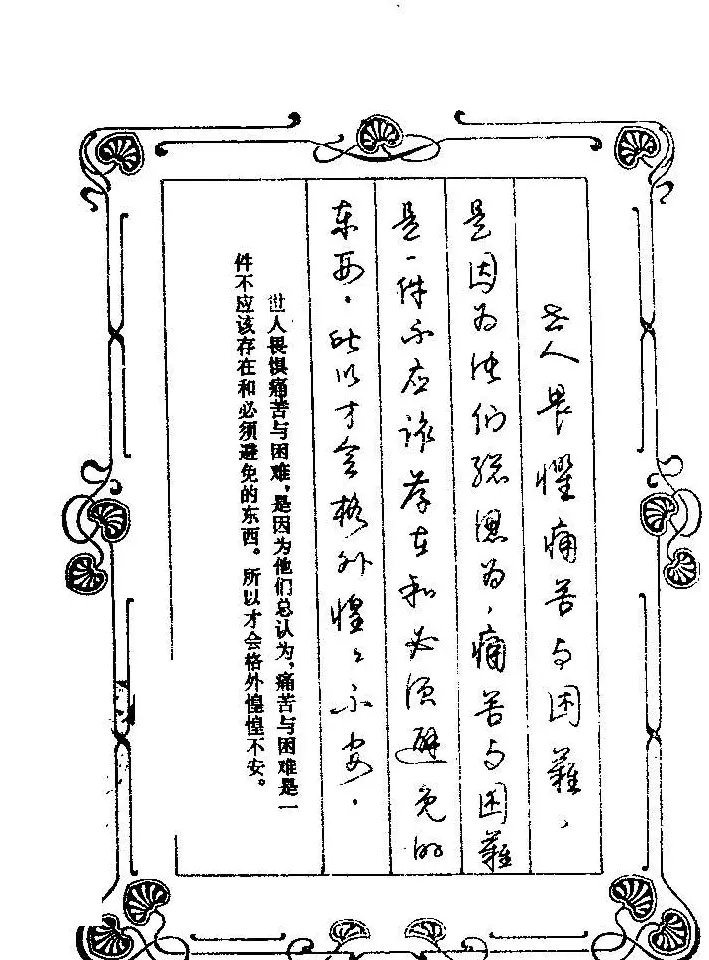 世人畏惧痛苦与困難，
是因为他们総認为，痛苦与困難
是一件不应该存在和必须避免的
东西。所以才会格外惶々不安。
世人畏惧痛苦与困难，是因为他们总认为，痛苦与困难是一
件不应该存在和必须避免的东西。所以才会格外惶惶不安。